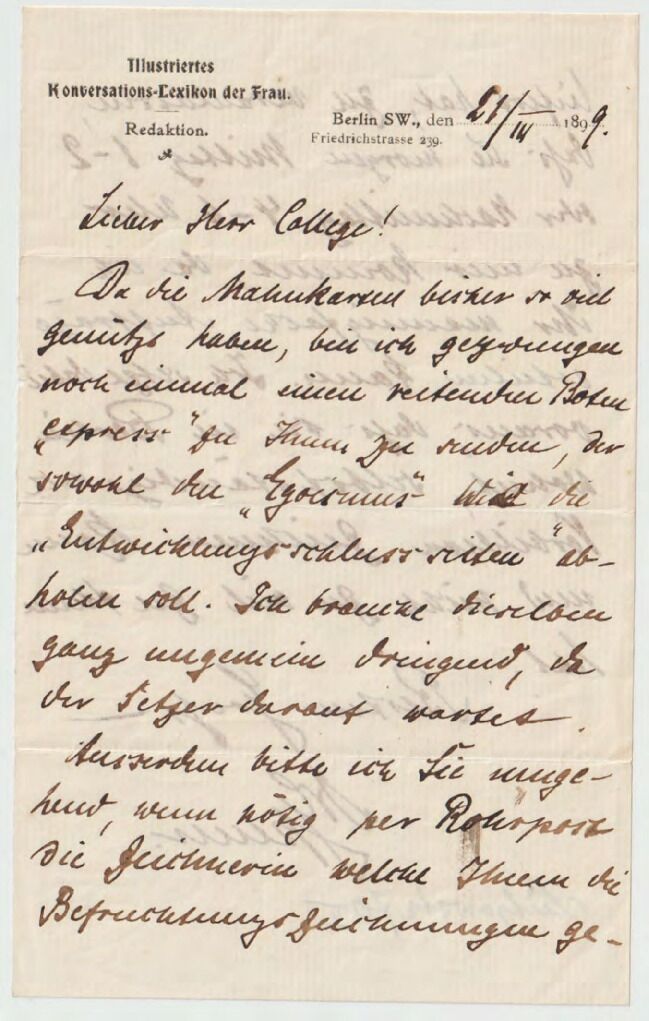 Illustriertes
Konversations-Lexikon der Frau.
Redaktion.
Berlin SW., den 21/III 1899.
Friedrichstrasse 239.
Lieber Herr College!
Da die Mahnkarten bisher so viel
genützt haben, bin ich gezwungen
noch einmal einen reitenden Boten
„express" zu Ihnen zu senden, der
sowohl den „Egoismus" wie die
„Entwicklungsschlussseiten" ab-
holen soll. Ich brauche dieselben
ganz ungemein dringend, da
der Setzer darauf wartet.
Ausserdem bitte ich Sie umge-
hend, wenn nötig per Rohrpost
die Zeichnerin welche Ihnen die
Befruchtungszeichnungen ge-